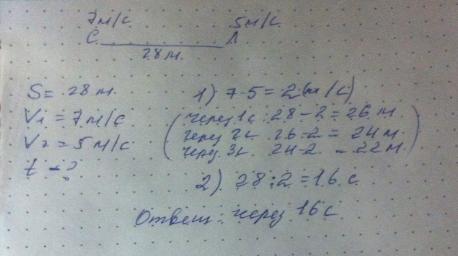 7м/с 5м/с
С Л
28 м.
S = 28 м.
V1 = 7 м/с
V2 = 5 м/с
t - ?
1) 7-5=2(м/с)
через 1с. 28-2=26 м.
через 2с. 26-2=24 м.
через 3с. 24-2=22 м.
2) 28:2=16 с.
Ответ: через 16 с.